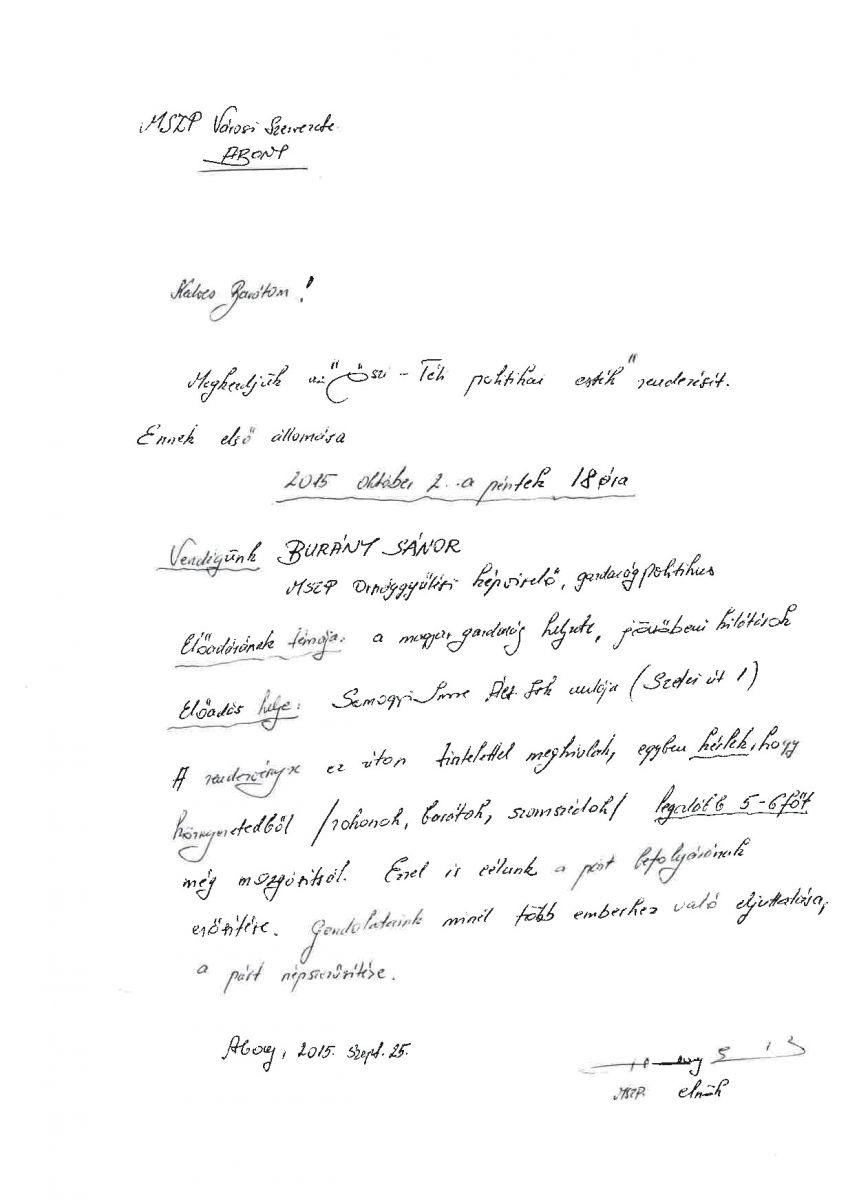 MSZP Városi Szervezete
ABONY
Kedves Barátom!
Megkezdjük az "Őszi - Téli politikai esték" rendezését.
Ennek első állomása
2015 október 2.-a péntek 18 óra
Vendégünk BURÁNY SÁNDOR
MSZP Országgyűlési képviselő, gazdaságpolitikus
Előadásának témája: a magyar gazdaság helyzete, jövőbeni kilátások
Előadás helye: Somogyi Imre Ált. Isk aulája (Szelei út 1)
A rendezvényre ez úton tisztelettel meghívlak, egyben kérlek, hogy
környezetedből /rokonok, barátok, szomszédok/ legalább 5-6 főt
még mozgósítsál. Ezzel is célunk a párt befolyásának
erősítése. Gondolataink minél több emberhez való eljuttatása,
a párt népszerűsítése.
Abony, 2015. szept. 25.
MSZP. elnök